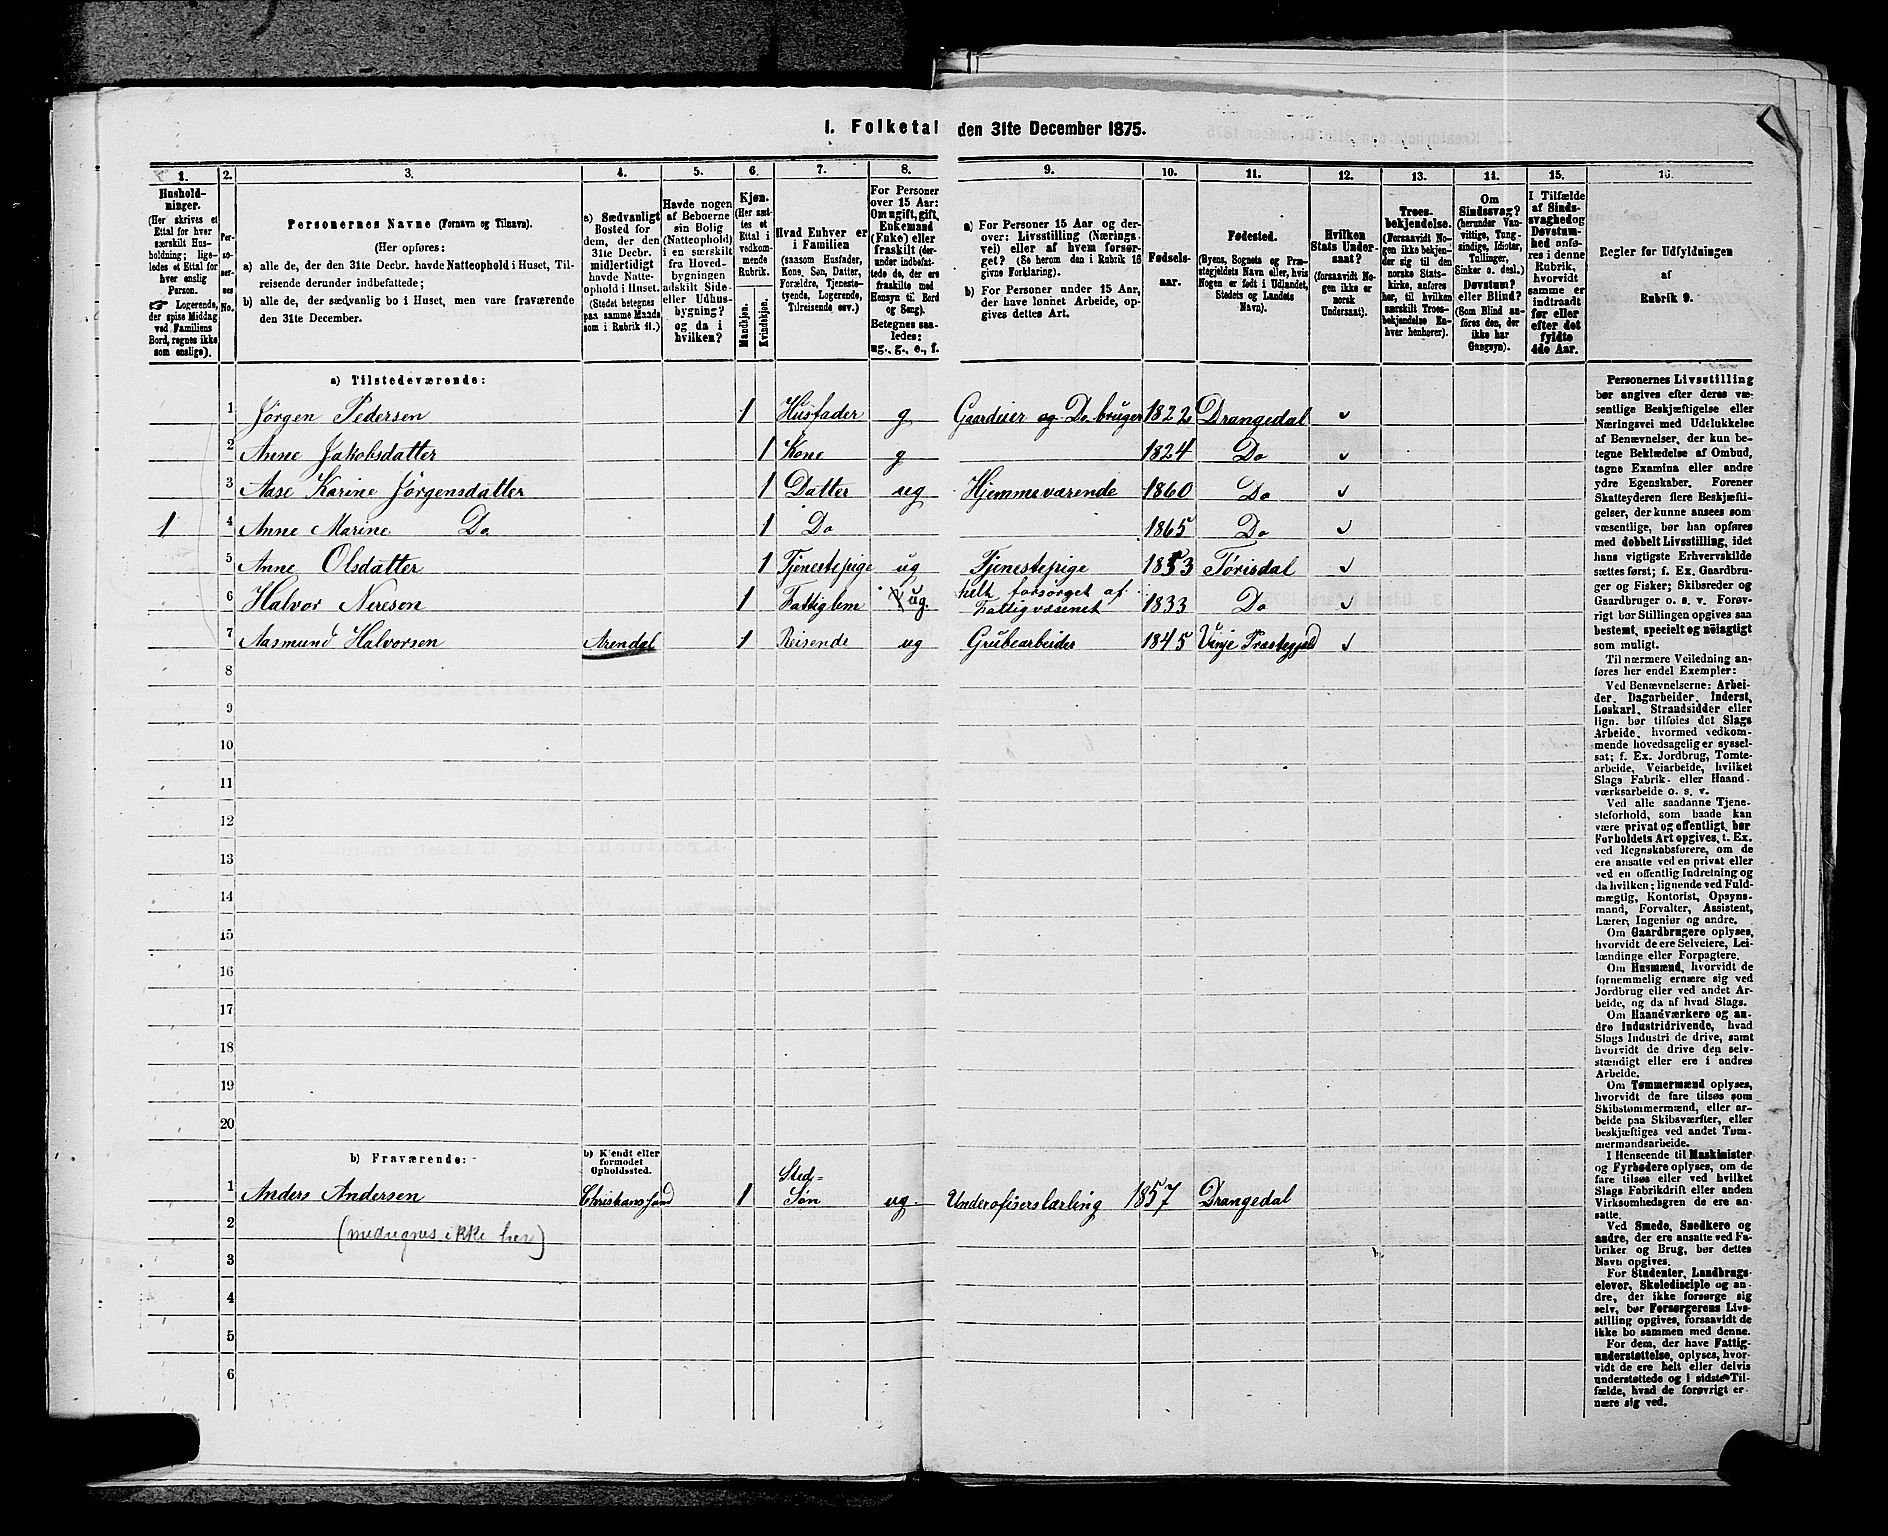 1. Folketal den 31te December 1875.
1. 2. 3. 4. 5. 6. 7. 8. 9. 10. 11. 12. 13. 14. 15. 16.
Hushold-
ninger.
(Her skrives et
Ettal for hver
særskilt Hus-
holdning; lige-
ledes et Ettal for
hver enslig
Person.
☞ Logerende,
der spise Middag
ved Familiens
Bord, regnes ikke
som enslige).
Per-
soner-
nes
No.
Personernes Navne (Fornavn og Tilnavn).
(Her opføres:
a) alle de, der den 31te Decbr. havde Natteophold i Huset, Til-
reisende derunder indbefattede;
b) alle de, der sædvanlig bo i Huset, men vare fraværende
den 31te December.
a) Sædvanligt
Bosted for
dem, der den
31te Decbr.
midlertidigt
havde Natte-
ophold i Huset.
(Stedet betegnes
paa samme Maade
som i Rubrik 11.)
Havde nogen
af Beboerne
sin Bolig
(Natteophold)
i en særskilt
fra Hoved-
bygningen
adskilt Side-
eller Udhus-
bygning?
og da i
hvilken?
Kjøn.
(Her sæt-
tes et
Ettal i
vedkom-
mende
Rubrik.
Mandkjøn.
Kvindekjøn.
Hvad Enhver er
i Familien
(saasom Husfader,
Kone, Søn, Datter,
Forældre, Tjeneste-
tyende, Logerende,
Tilreisende osv.)
For Personer
over 15 Aar:
Om ugift, gift,
Enkemand
(Enke) eller
fraskilt (der-
under indbefat-
tede de, der ere
fraskilte med
Hensyn til Bord
og Seng).
Betegnes saa-
ledes:
ug., g., e., f.
a) For Personer 15 Aar og der-
over: Livsstilling (Nærings-
vei) eller af hvem forsør-
get? (Se herom den i Rubrik 16
givne Forklaring).
b) For Personer under 15 Aar,
der have lønnet Arbeide, op-
gives dettes Art.
Fødsels-
aar.
Fødested.
(Byens, Sognets og Præ-
stegjeldets Navn eller, hvis
Nogen er født i Udlandet,
Stedets og Landets
Navn).
Hvilken
Stats Under-
saat?
(forsaavidt No-
gen ikke er
norsk
Undersaat).
Troes-
bekjendelse.
(Forsaavidt No-
gen ikke bekjen-
der sig til den
norske Stats-
kirke, anføres
her, til hvilken
særskilt Troes-
bekjendelse En-
hver henhører).
Om
Sindssvag?
(herunder Van-
vittige, Tung-
sindige, Idioter,
Tullinger,
Sinker o. desl.)
Døvstum?
eller Blind?
(Som Blind an-
føres den, der
ikke har
Gangsyn).
I Tilfælde
af Sinds-
svaghed og
Døvstum-
hed anfø-
res i denne
Rubrik,
hvorvidt
samme er
indtraadt
før eller
efter det
fyldte
4de Aar.
Regler for Udfyldningen
af
Rubrik 9.
a) Tilstedeværende:
1 Jørgen Pedersen 1 Husfader g Gaardeier og Do bruger 1822 Drangedal
2 Anne Jakobsdatter 1 Kone g 1824 Do
3 Aase Karine Jørgensdatter 1 Datter ug Hjemmeværende 1860 Do
1 4 Anne Marine Do 1 Do 1865 Do
5 Anne Olsdatter 1 Tjenestepige ug Tjenestepige 1853 Tørisdal
6 Halvor Neresen 1 Fattiglem ug. helt forsørget af Fattigvæsenet 1833 Do
7 Aasmund Halvorsen Arendal 1 Reisende ug Grubearbeider 1845 Vinje Præstegjeld
8
9
10
11
12
13
14
15
16
17
18
19
20
b) Fraværende:
b) Kjendt eller
formodet
Opholdssted.
1 Anders Andersen Christianssand 1 Sted-Søn ug. Underofiserslærling 1857 Drangedal
2 (medregnes ikke her)
3
4
5
6
Personernes Livsstilling
bør angives efter deres væ-
sentlige Beskjæftigelse eller
Næringsvei med Udelukkelse
af Benævnelser, der kun be-
tegne Beklædelse af Ombud,
tagne Examina eller andre
ydre Egenskaber. Forener
Skatteyderen flere Beskjæfti-
gelser, der kunne ansees som
væsentlige, bør han opføres
med dobbelt Livsstilling, idet
hans vigtigste Erhvervskilde
sættes først; f. Ex. Gaardbru-
ger og Fisker; Skibsreder og
Gaardbruger o. s. v. Forøv-
rigt bør Stillingen opgives saa
bestemt, specielt og nøiagtigt
som muligt.
Til nærmere Veiledning an-
føres her endel Exempler:
Ved Benævnelserne: Arbei-
der, Dagarbeider, Inderst,
Løskarl, Strandsidder eller
lign. bør tilføies det Slags
Arbeide, hvormed vedkom-
mende hovedsagelig er syssel-
sat; f. Ex. Jordbrug, Tomte-
arbeide, Veiarbeide, hvilket
Slags Fabrik- eller Haand-
værksarbeide o. s. v.
Ved alle saadanne Tjene-
steforhold, som baade kan
være privat og offentligt, bør
Forholdets Art opgives, t. Ex.
ved Regnskabsførere, om de
ere ansatte ved en privat eller
ved en offentlig Indretning og
da hvilken; lignende ved Fuld-
mægtig, Kontorist, Opsyns-
mand, Forvalter, Assistent,
Lærer, Ingeniør og andre.
Om Gaardbrugere oplyses,
hvorvidt de ere Selveiere, Lei-
lændinge eller Forpagtere.
Om Husmænd, hvorvidt de
fornemmelig ernære sig ved
Jordbrug eller ved andet Ar-
beide, og da af hvad Slags.
Om Haandværkere og an-
dre Industridrivende, hvad
Slags Industri de drive, samt
hvorvidt de drive den selv-
stændigt eller ere i andres
Arbeide.
Om Tømmermænd oplyses,
hvorvidt de fare tilsøs som
Skibstømmermænd, eller ar-
beide paa Skibsværfter, eller
beskjæftiges ved andet Tøm-
mermandsarbeide.
I Henseende til Maskinister
og Fyrbødere oplyses, om de
fare tilsøs eller ved hvilket
Slags Fabrikdrift eller anden
Virksomhedsgren de ere an-
satte.
Ved Smede, Snedkere og
andre, der ere ansatte ved Fa-
briker og Brug, bør dettes
Navn opgives.
For Studenter, Landbrugs-
elever, Skoledisciple og an-
dre, der ikke forsørge sig
selv, bør Forsørgerens Livs-
stilling opgives, forsaavidt de
ikke bo sammen med denne.
For dem, der have Fattig-
understøttelse, oplyses, hvor-
vidt de ere helt eller delvis
understøttede og i sidste Til-
fælde, hvad de forøvrigt er-
nære sig ved.